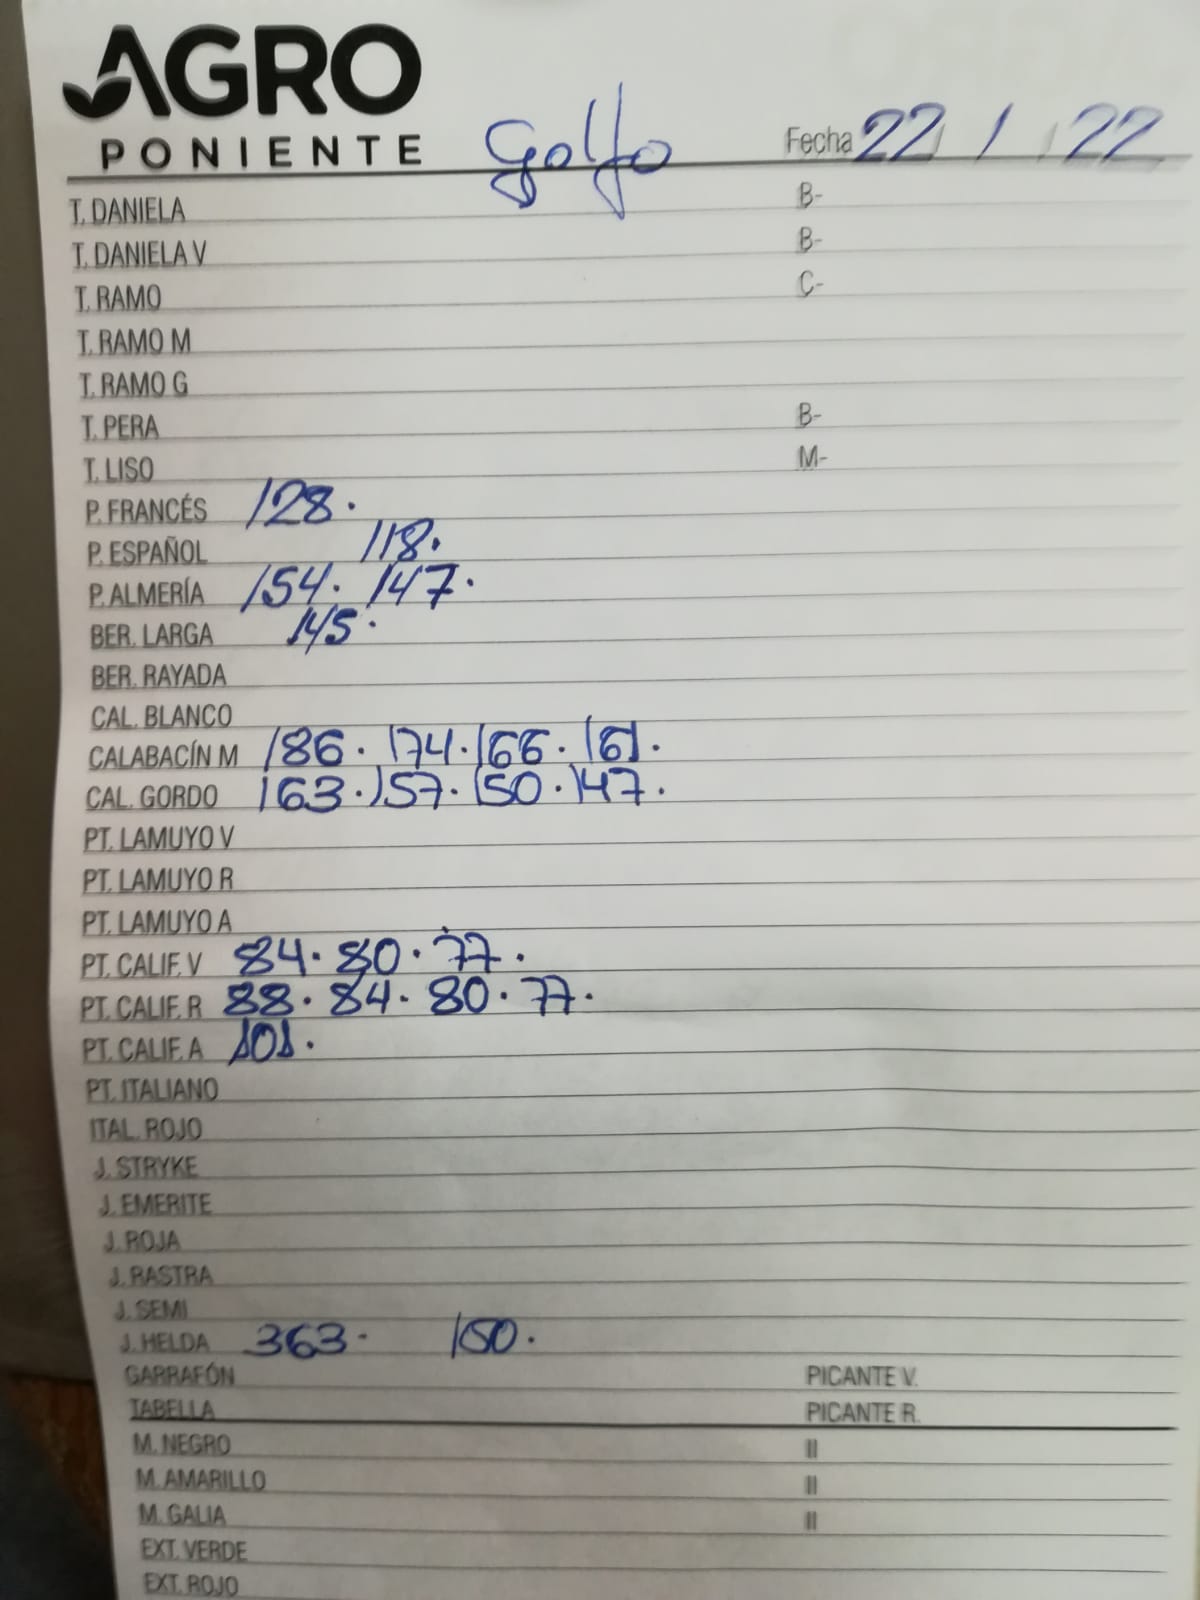 AGRO
PONIENTE
Golfo
Fecha 22 / 22
T. DANIELA B-
T. DANIELA V B-
T. RAMO C-
T. RAMO M
T. RAMO G
T. PERA B-
T. LISO M-
P. FRANCÉS 128.
P. ESPAÑOL 118.
P. ALMERÍA 154. 147.
BER. LARGA 145.
BER. RAYADA
CAL. BLANCO
CALABACÍN M 186. 174. 166. 161.
CAL. GORDO 163. 157. 150. 147.
PT. LAMUYO V
PT. LAMUYO R
PT. LAMUYO A
PT. CALIF. V 84. 80. 77.
PT. CALIF. R 88. 84. 80. 77.
PT. CALIF. A 101.
PT. ITALIANO
ITAL. ROJO
J. STRYKE
J. EMERITE
J. ROJA
J. RASTRA
J. SEMI
J. HELDA 363. 150.
GARRAFÓN PICANTE V.
TABELLA PICANTE R.
M. NEGRO II
M. AMARILLO II
M. GALIA II
EXT. VERDE
EXT. ROJO